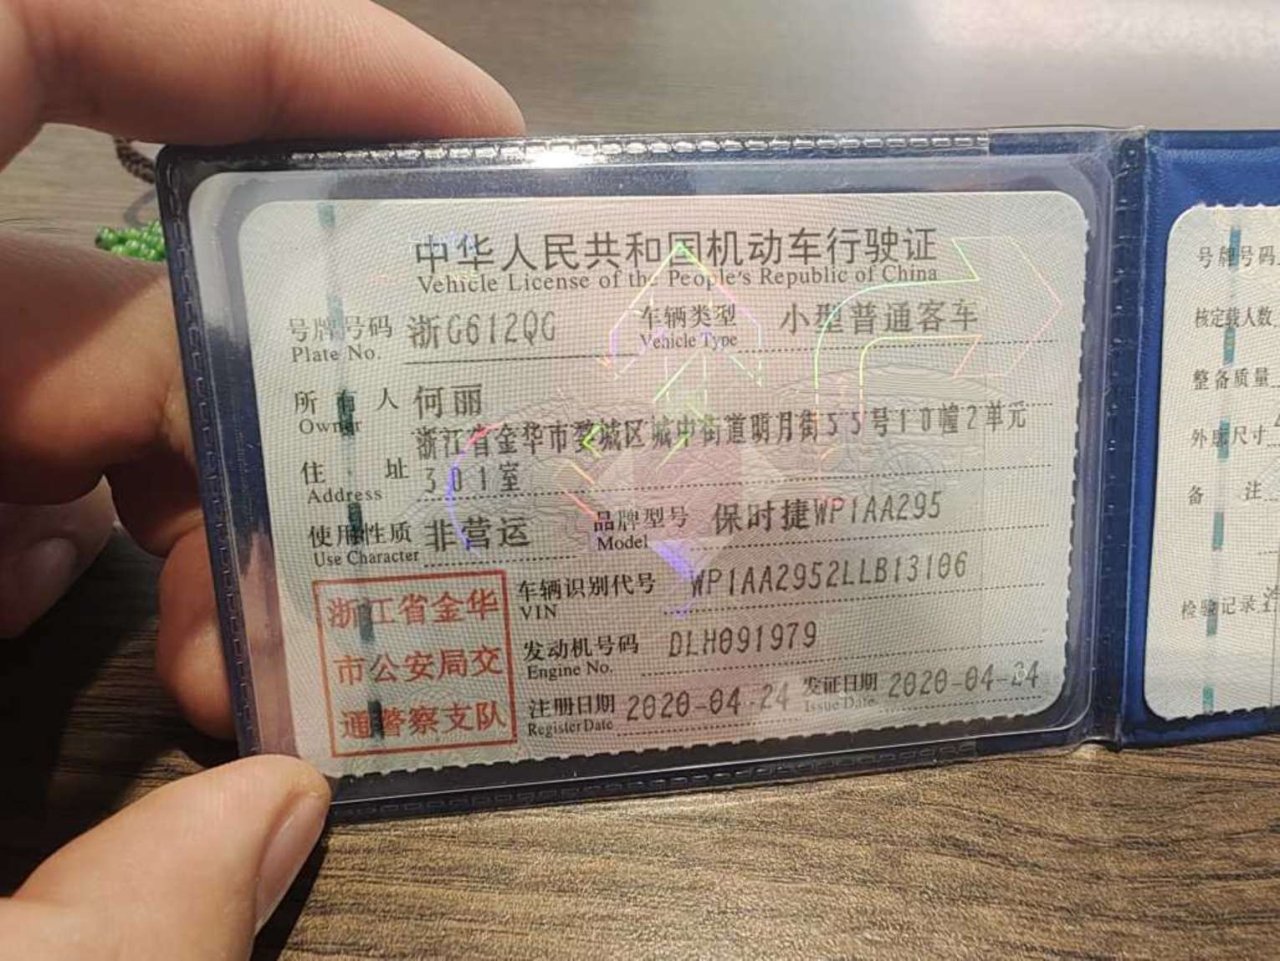 中华人民共和国机动车行驶证
Vehicle License of the People's Republic of China
号牌号码 浙G612QG 车辆类型 小型普通客车
Plate No. Vehicle Type
所有人 何丽
Owner
浙江省金华市婺城区城中街道明月街55号10幢2单元
住址 301室
Address
使用性质 非营运 品牌型号 保时捷WP1AA295
Use Character Model
车辆识别代号 WP1AA2952LLB13106
VIN
发动机号码 DLH091979
Engine No.
注册日期 2020-04-24 发证日期 2020-04-24
Register Date Issue Date
浙江省金华
市公安局交
通警察支队
号牌号码
核定载人数
整备质量
外廓尺寸
备注
检验记录